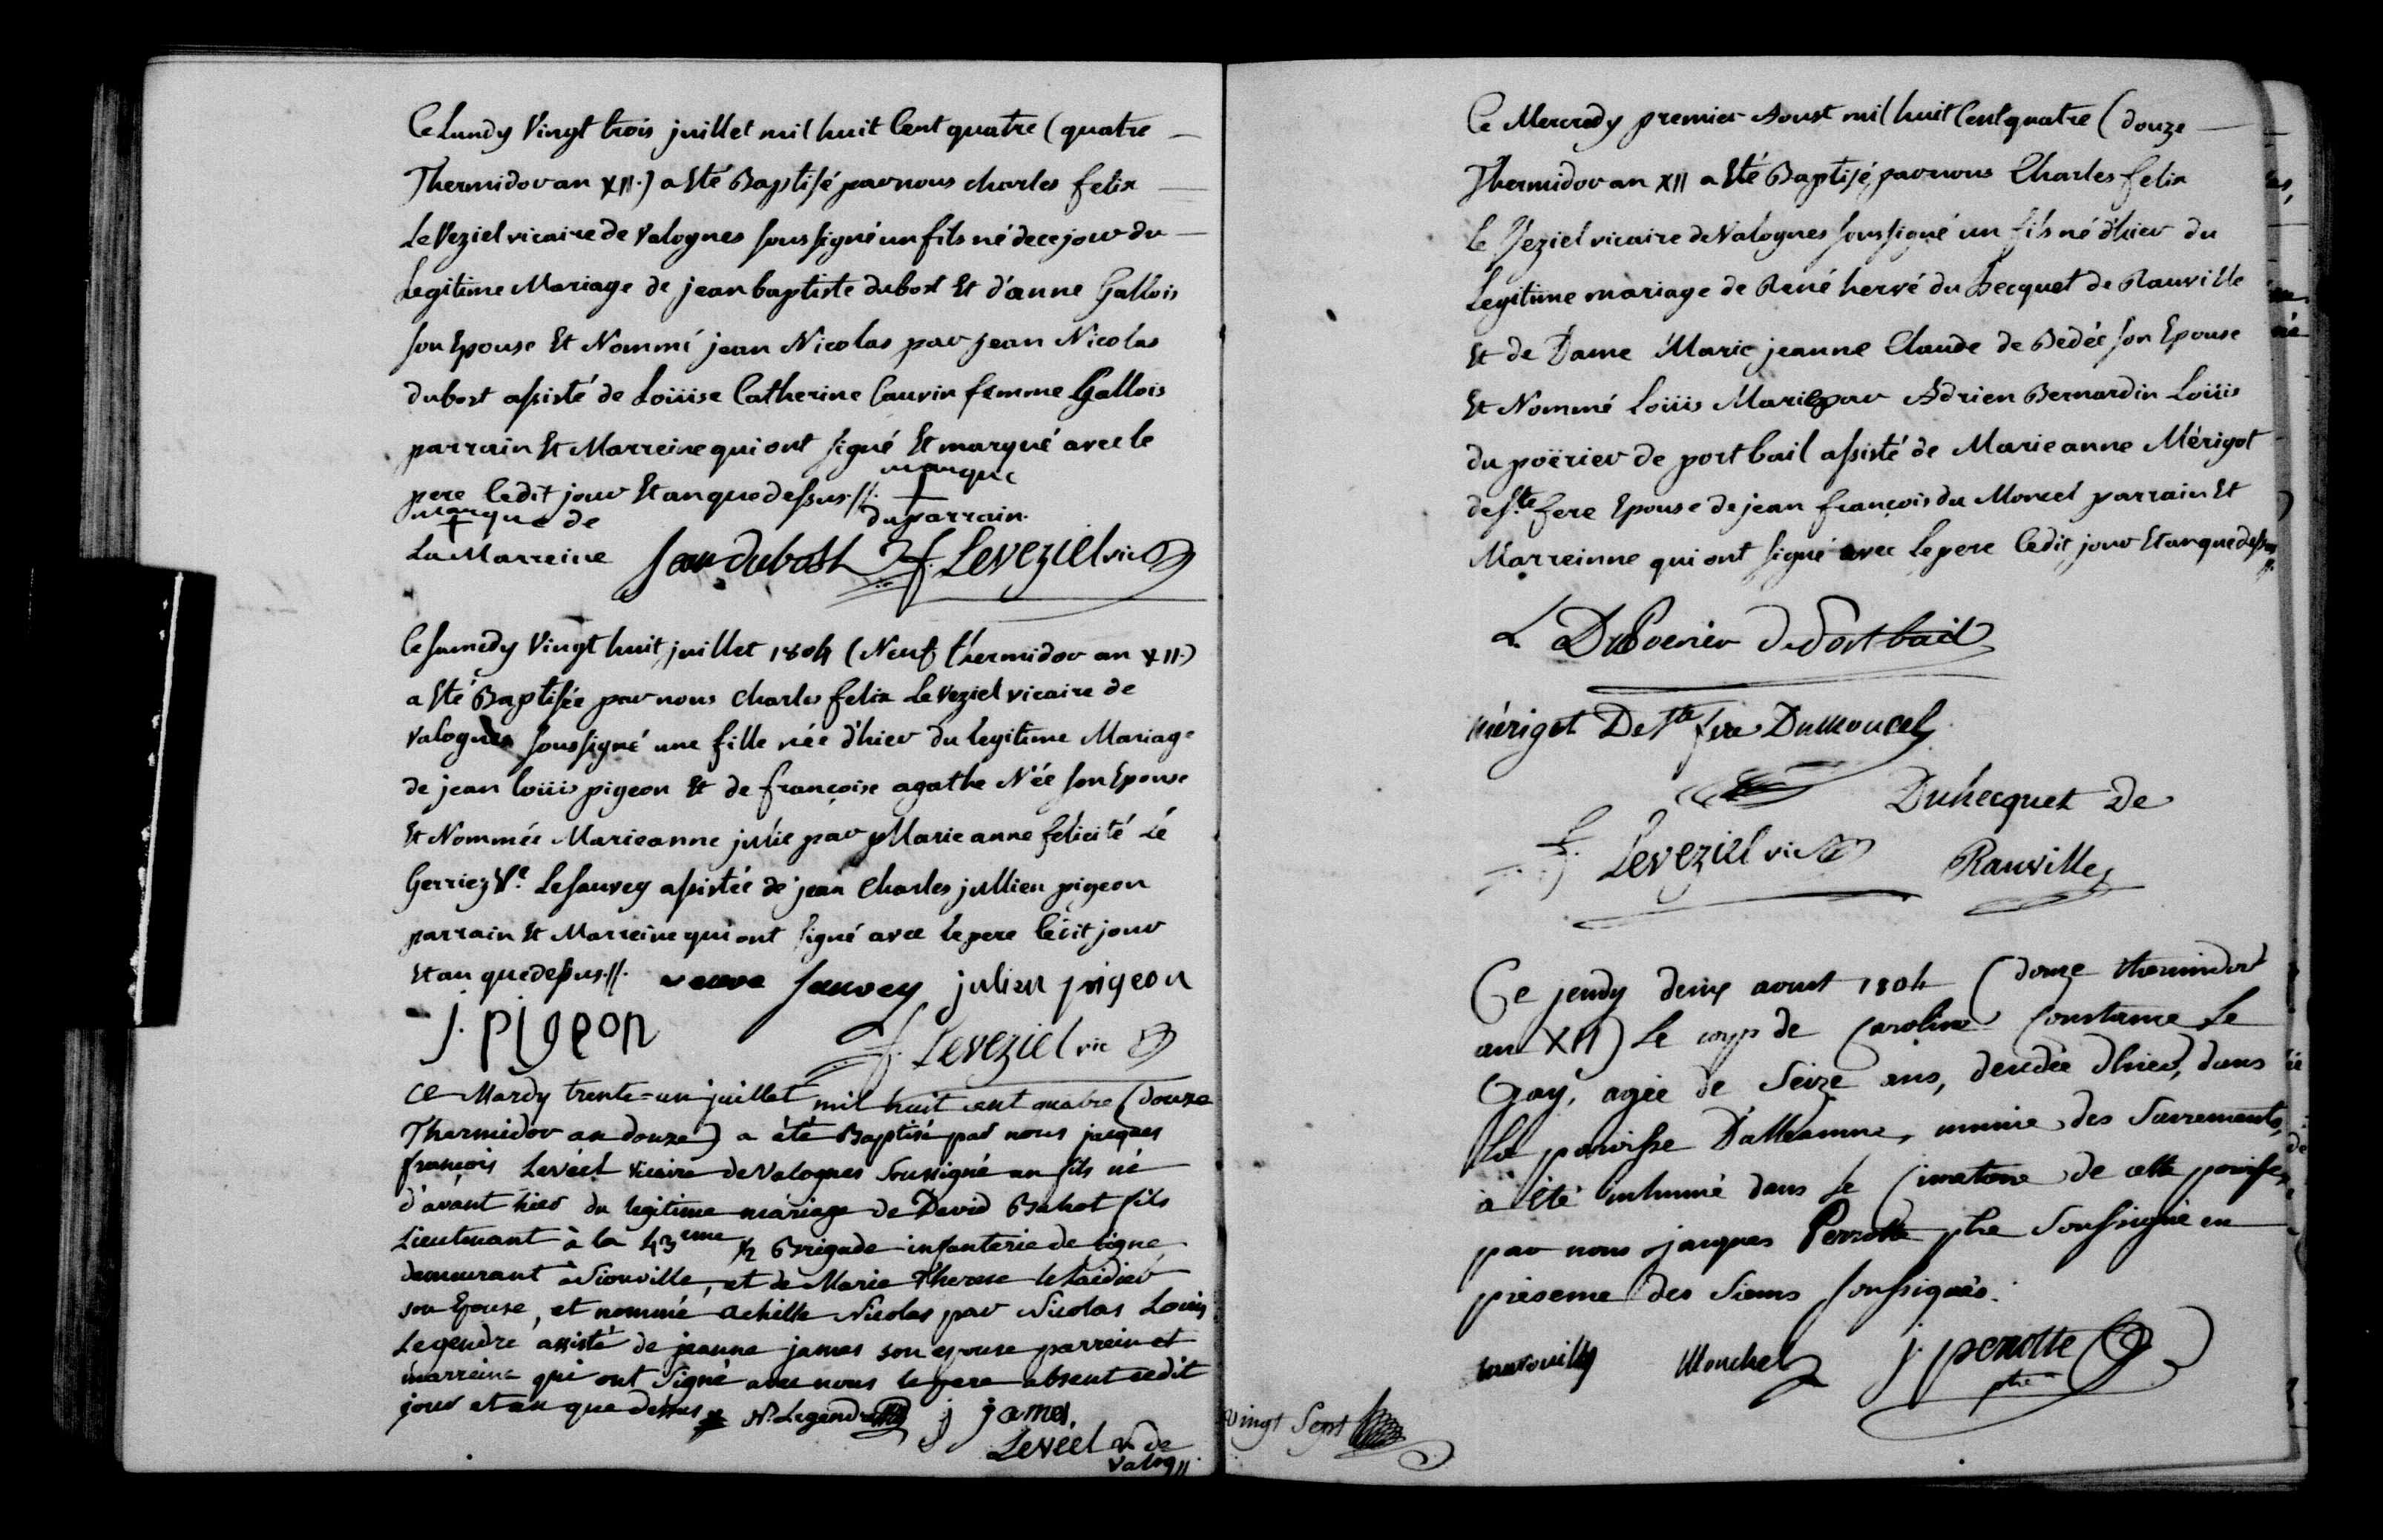 Ce Lundy Vingt trois juillet mil huit Cent quatre (quatre
Thermidor an XII.) a Eté Baptisé par nous charles felix
Le Veziel vicaire de Valognes soussigné un fils né de ce jour du
Legitime Mariage de jean baptiste dubost Et d'anne Gallois
son Epouse Et Nommé jean Nicolas par jean Nicolas
dubost assisté de Loüise Catherine Cauvin femme Gallois
parrain Et Marreine qui ont signé Et marqué avec le
pere Cedit jour Et an que dessus.//. marque
du parrain.
marque de
La Marreine jan dubost f. Leveziel vic
Ce samedy Vingt huit juillet 1804 (Neuf thermidor an XII.)
a Eté Baptisée par nous charles felix Le Veziel vicaire de
Valognes soussigné une fille née d'hier du legitime Mariage
de jean loüis pigeon Et de françoise agathe Née son Epouse
Et Nommée Marieanne julie par Marie anne felicité Le
Gerriez Ve. Le sauvey assistée de jean Charles jullien pigeon
parrain Et Marreine qui ont signé avec le pere Cedit jour
Et an que dessus.//. veuve sauvey julien pigeon
j. pigeon f. Leveziel vic
Ce Mardy trente-un juillet mil huit cent quatre (douze
Thermidor an douze) a été Baptisé par nous jacques
françois Levéel vicaire de Valognes soussigné un fils né
d'avant hier du legitime mariage de David Bahot fils
Lieutenant à la 43eme ½ Brigade infanterie de ligne
demeurant à Siouville, et de Marie Therese le taidier
son Epouse, et nommé achille Nicolas par Nicolas Louis
Legendre assisté de jeanne james son epouse parrein et
marreine qui ont signé avec nous le pere absent cedit
jour et an que dessus N. Legendre j james.
Levéel v. de
Valog//.
Ce Mercredy premier Aoust mil huit Cent quatre (douze
Thermidor an XII a Eté Baptisé par nous Charles felix
le Veziel vicaire de Valognes soussigné un fils né d'hier du
Legitime mariage de René hervé du hecquet de Rauville
Et de Dame Marie jeanne Claude de Bedée son Epouse
Et Nommé Loüis Marie par Adrien Bernardin Loüis
du poërier de portbail assisté de Marieanne Mérigot
de Ste. fere Epouse de jean françois du Moncel parrain Et
Marreinne qui ont signé avec Le pere Cedit jour Et an que dessus
//.
L Du Poerier de Portbail
mérigot De Ste fere Dumoncel
Duhecquet de
Rauville
f. Leveziel vic
Ce jeudy deux aoust 1804 (douze thermidor
an XII) Le corps de Caroline Constance Le
Gay, agée de Seize ans, decedée d'hier, dans
la paroisse D'alleaume, munie des Sacrements,
a été inhumé dans le Cimetiere de cette paroisse,
par nous jacques Perrotte ptre Soussigné en
presence des Sieurs soussignés.
Mouchel j. perrotte
ptre
Vingt Sept